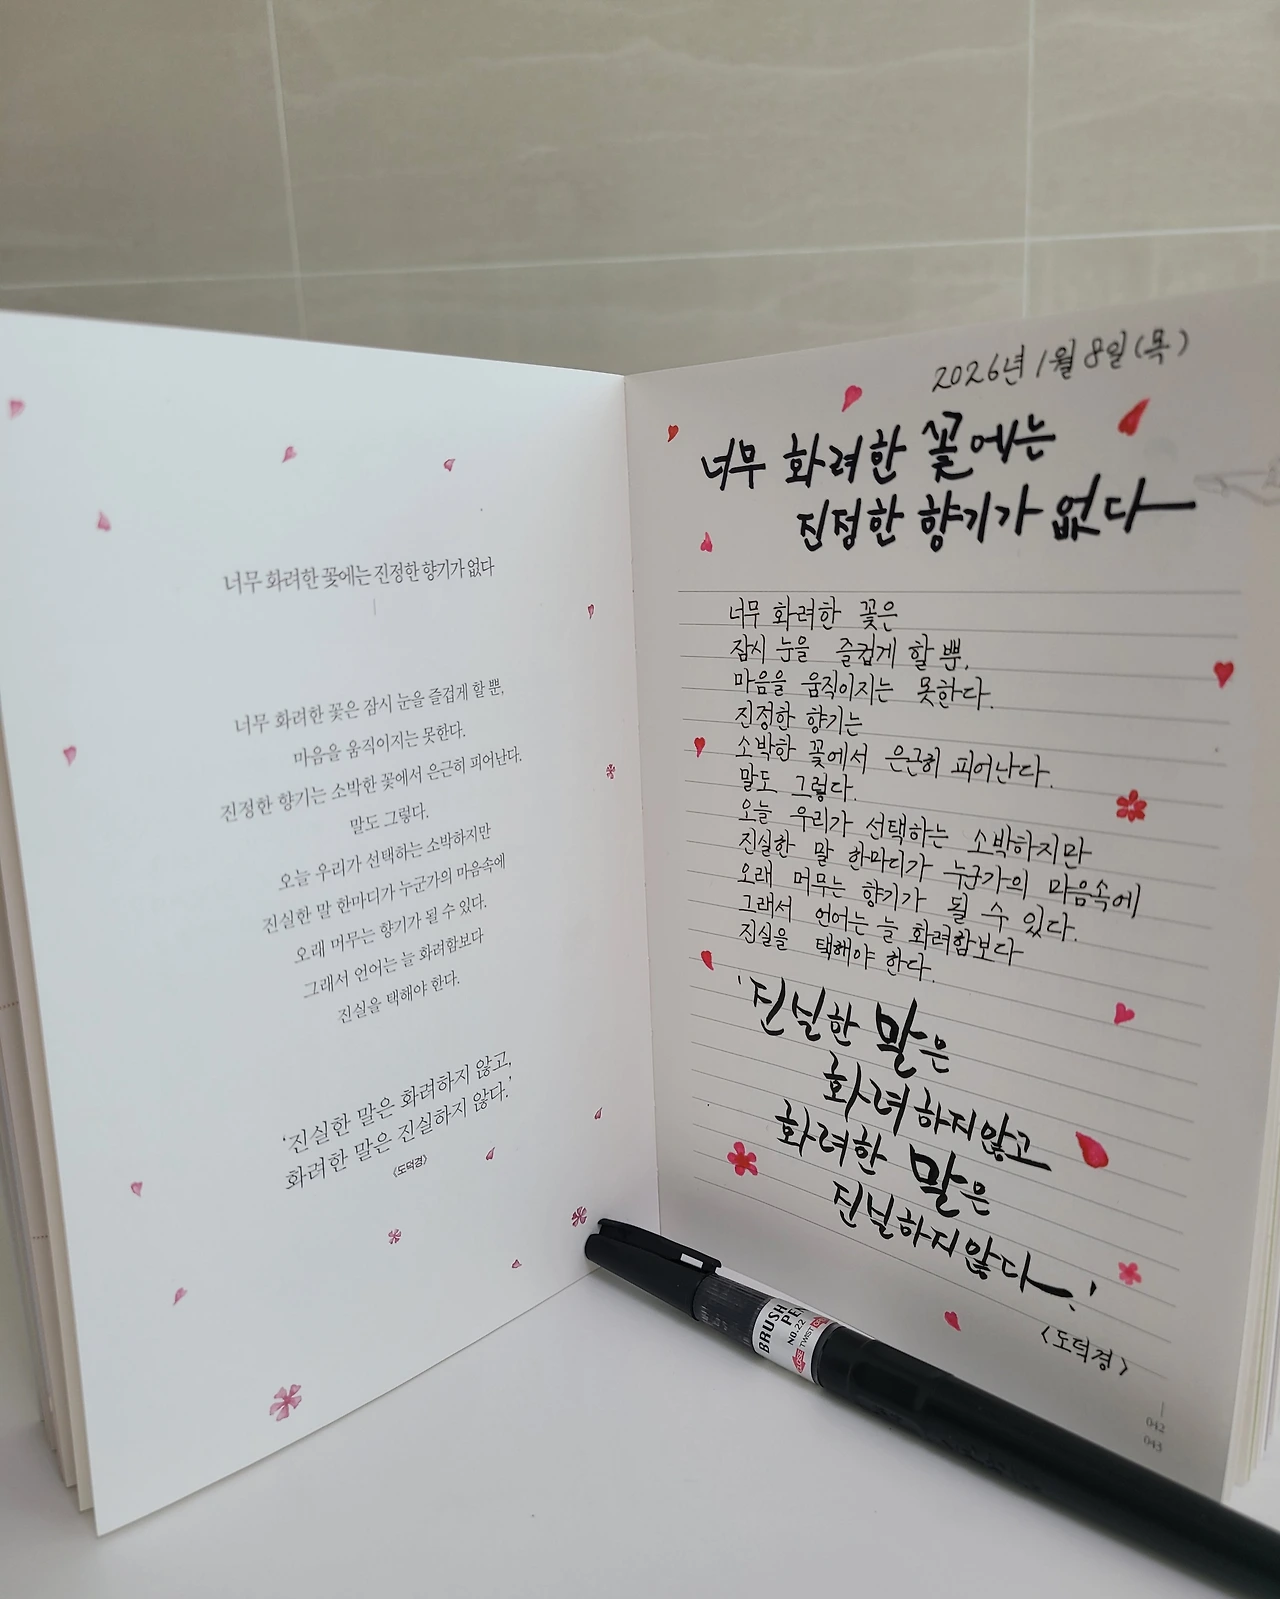 너무 화려한 꽃에는 진정한 향기가 없다
너무 화려한 꽃은 잠시 눈을 즐겁게 할 뿐,
마음을 움직이지는 못한다.
진정한 향기는 소박한 꽃에서 은근히 피어난다.
말도 그렇다.
오늘 우리가 선택하는 소박하지만
진실한 말 한마디가 누군가의 마음속에
오래 머무는 향기가 될 수 있다.
그래서 언어는 늘 화려함보다
진실을 택해야 한다.
‘진실한 말은 화려하지 않고,
화려한 말은 진실하지 않다.’
《도덕경》
2026년 1월 8일(목)
너무 화려한 꽃에는
진정한 향기가 없다
너무 화려한 꽃은
잠시 눈을 즐겁게 할 뿐,
마음을 움직이지는 못한다.
진정한 향기는
소박한 꽃에서 은근히 피어난다.
말도 그렇다.
오늘 우리가 선택하는 소박하지만
진실한 말 한마디가 누군가의 마음속에
오래 머무는 향기가 될 수 있다.
그래서 언어는 늘 화려함보다
진실을 택해야 한다.
‘진실한 말은
화려하지않고
화려한 말은
진실하지않다.’
<도덕경>
042
043
BRUSH
PEN
NO.22
CLOSE TWIST